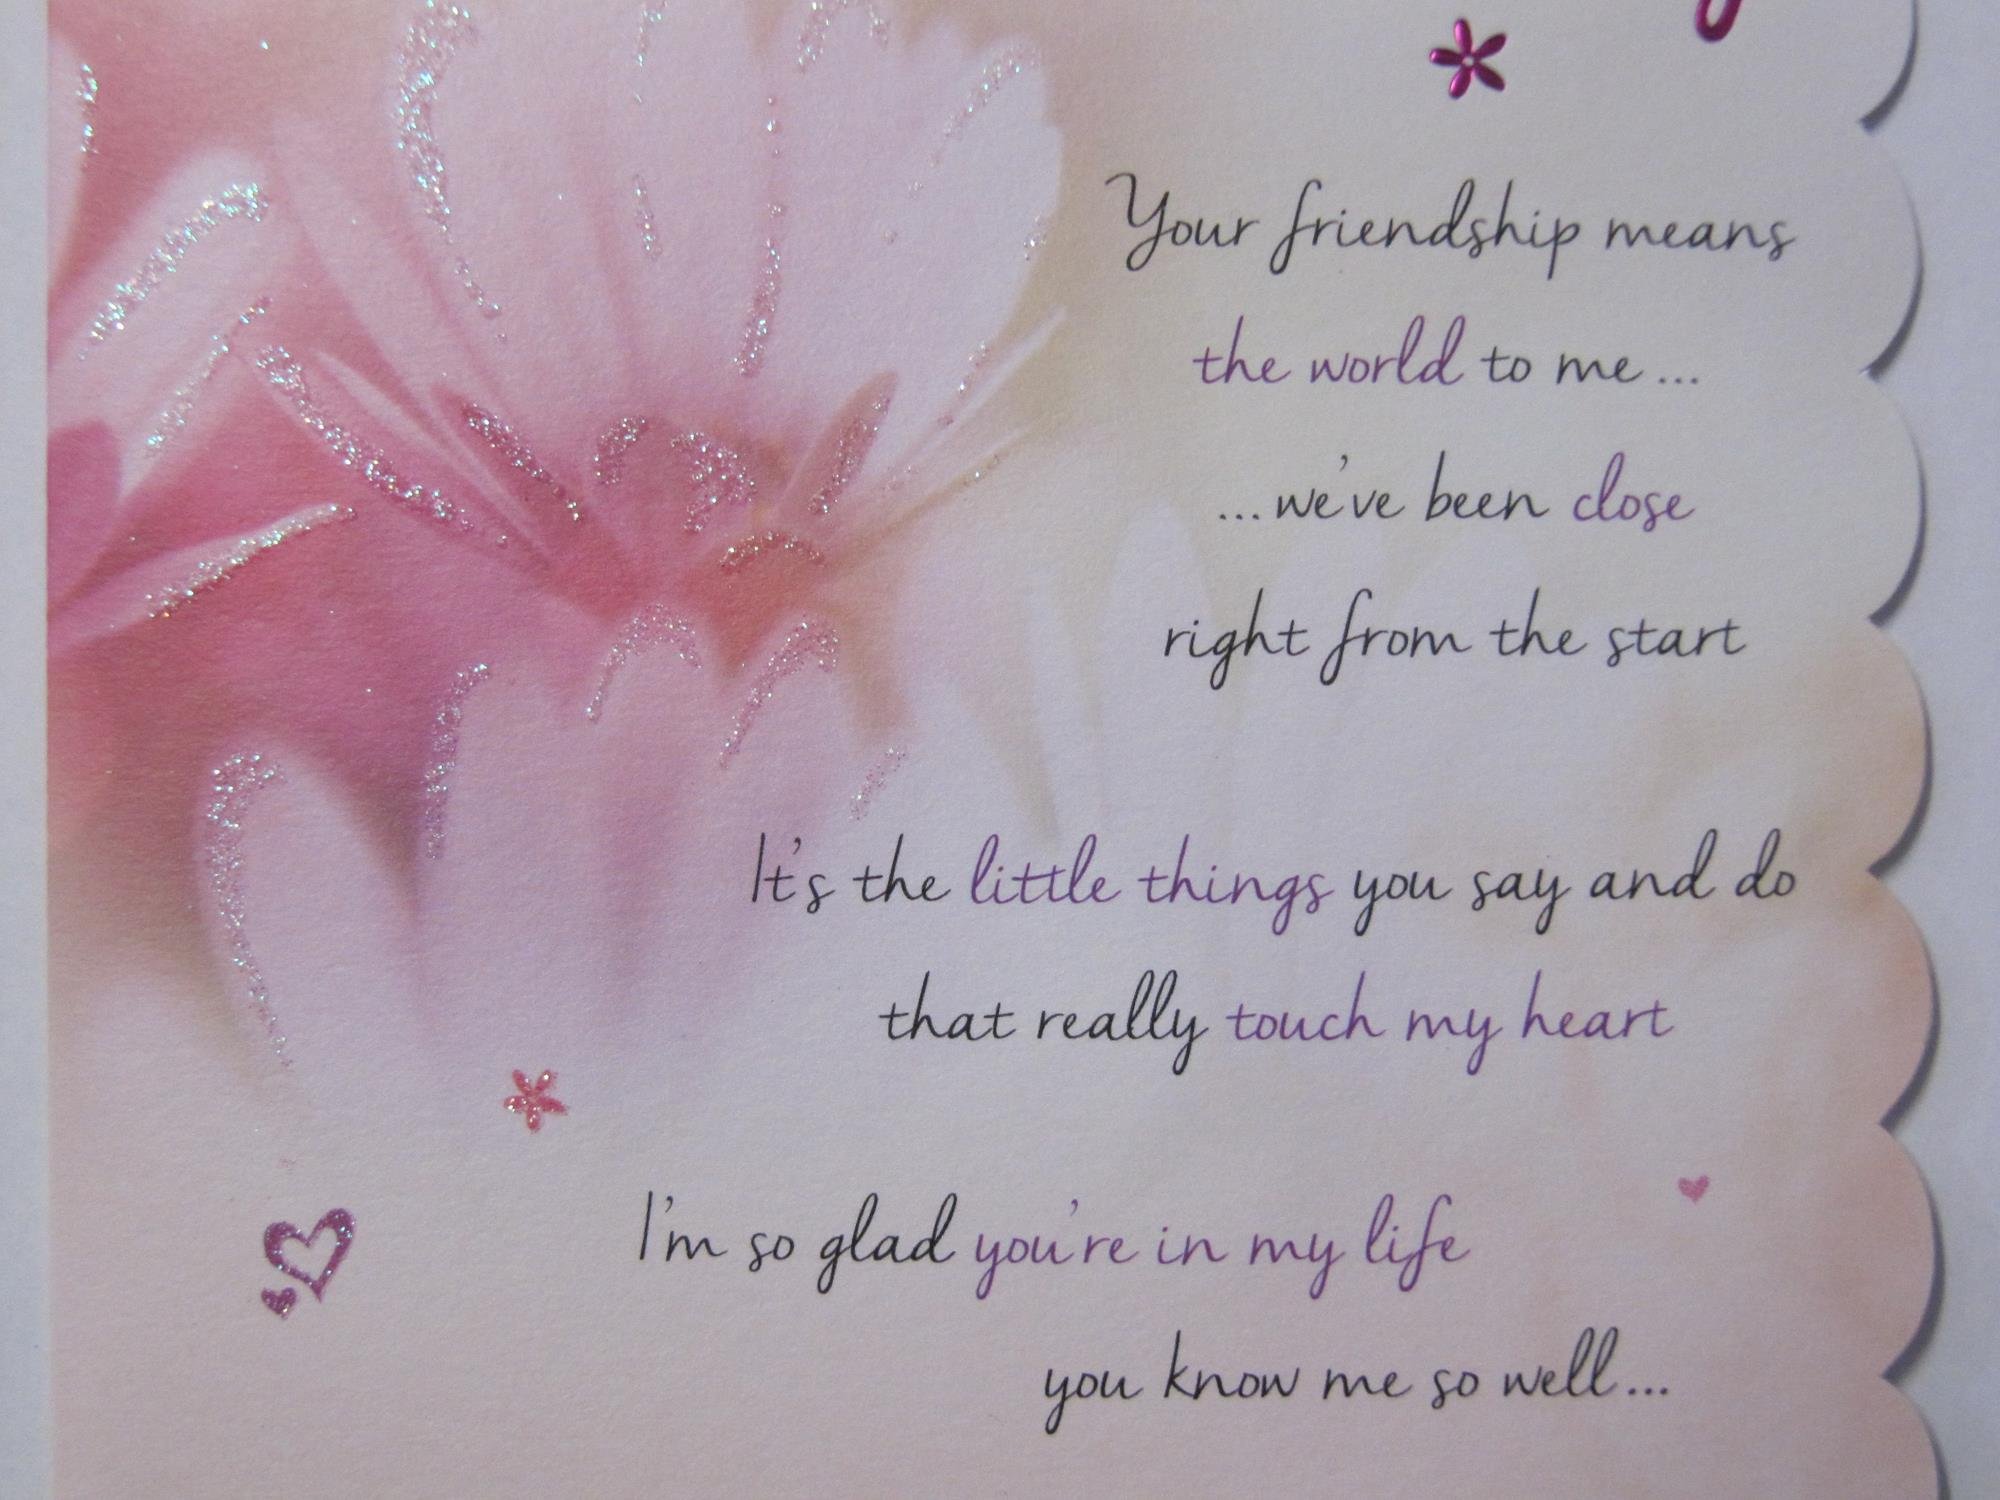 Your friendship means
the world to me...
...we've been close
right from the start
It's the little things you say and do
that really touch my heart
I'm so glad you're in my life
you know me so well...